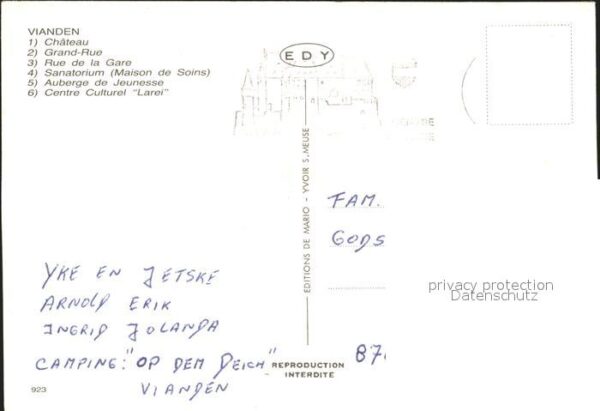 VIANDEN
1) Château
2) Grand-Rue
3) Rue de la Gare
4) Sanatorium (Maison de Soins)
5) Auberge de Jeunesse
6) Centre Culturel "Larei"
EDY
EDITIONS DE MARIO - YVOIR S. MEUSE
FAM.
GODS
privacy protection
Datenschutz
YKE EN JETSKE
ARNOLD ERIK
INGRID JOLANDA
CAMPING: "OP DEM DEICH"
VIANDEN
REPRODUCTION
INTERDITE
87
923